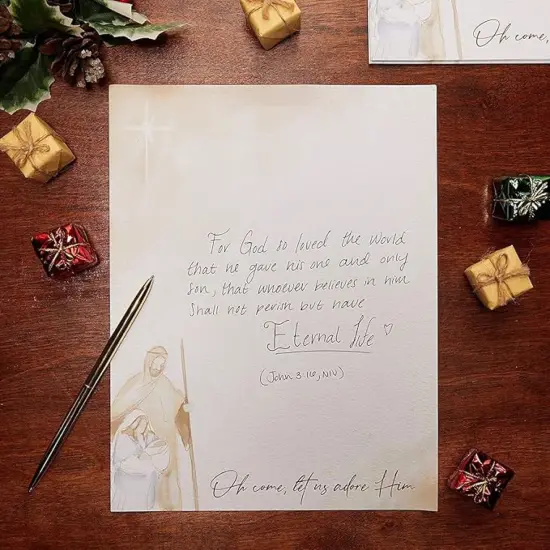 Oh come,
For God so loved the world
that he gave his one and only
Son, that whoever believes in him
shall not perish but have
Eternal life ♡
(John 3:16, NIV)
Oh come, let us adore Him